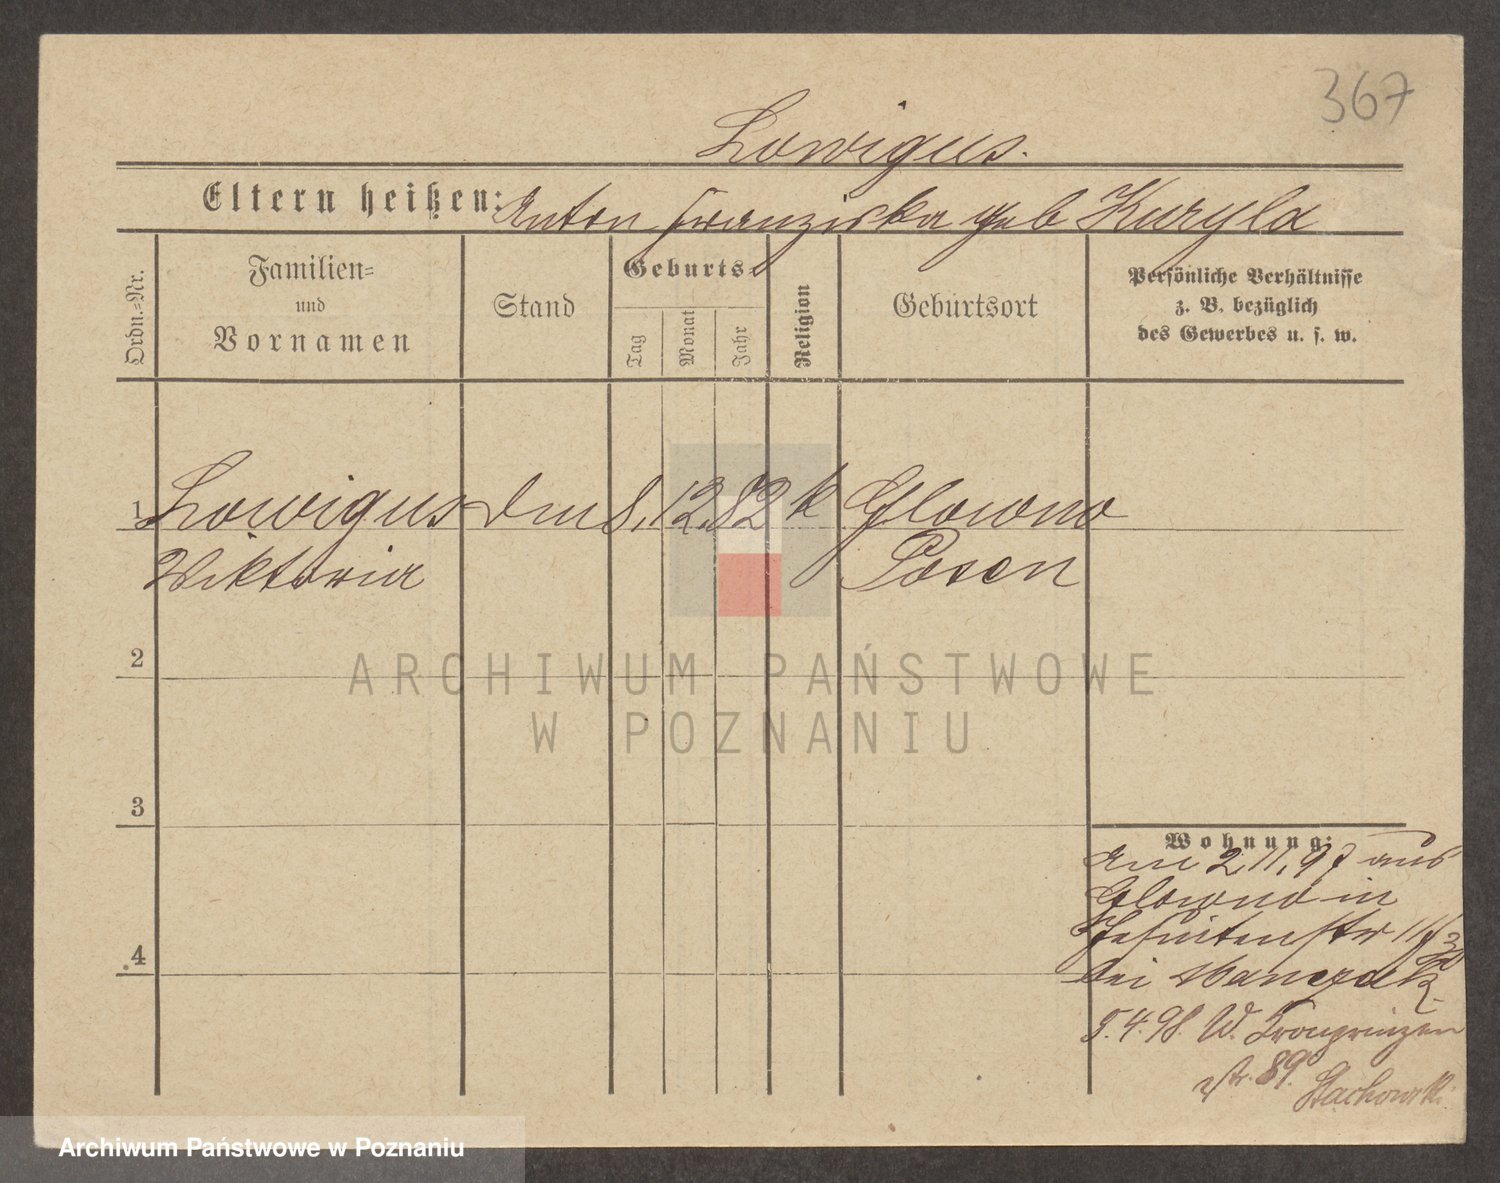 367
Lowigus.
Eltern heißen: Anton Franziska geb Kuryla
Ordn.=Nr.
Familien=
und
Vornamen
Stand
Geburts=
Tag
Monat
Jahr
Religion
Geburtsort
Persönliche Verhältnisse
z. B. bezüglich
des Gewerbes u. s. w.
1 Lowigus 8. 12. 82 k Glowno
Wiktoria Posen
2
ARCHIWUM PAŃSTWOWE
W POZNANIU
3
Wohnung:
Am 2.11.97 aus
Glowno in
Jesuitenstr 11
4
bei
5.4.98. W. Kronprinzen
str. 89. Stachowski
Archiwum Państwowe w Poznaniu